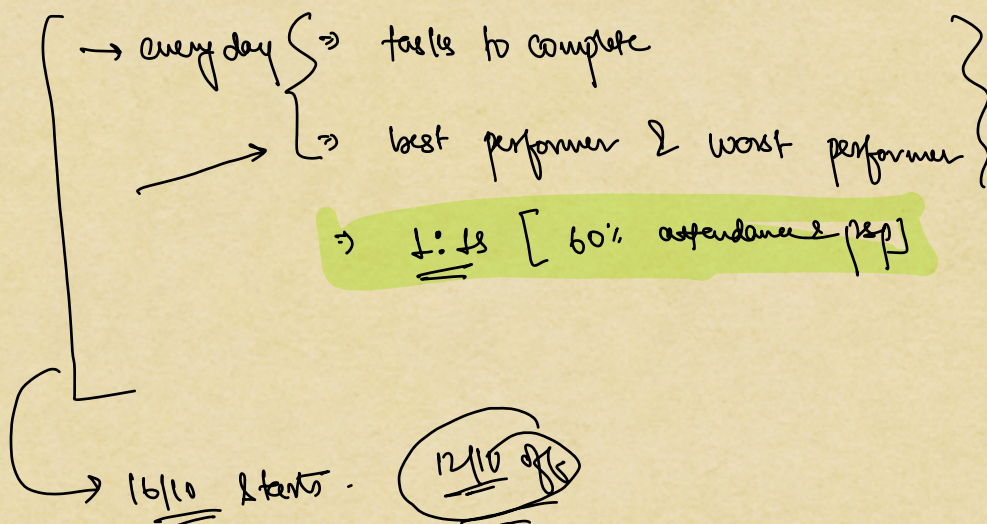 → every day ⇒ tasks to complete
⇒ best performer & worst performer
⇒ 1:1s [60% attendance & psp]
→ 16/10 starts. 12/10 off